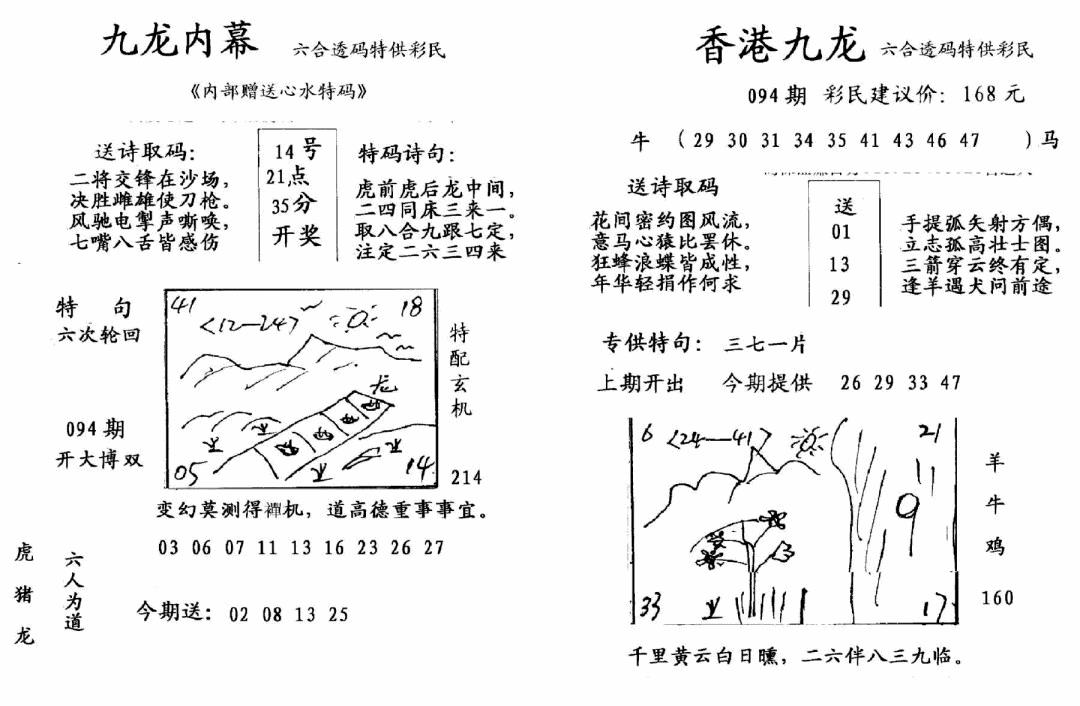 九龙内幕 六合透码特供彩民
《内部赠送心水特码》
送诗取码：
二将交锋在沙场，
决胜雌雄使刀枪。
风驰电掣声嘶唤，
七嘴八舌皆感伤
14号
21点
35分
开奖
特码诗句：
虎前虎后龙中间，
二四同床三来一。
取八合九跟七定，
注定二六三四来
特 句
六次轮回
094期
开大博双
41
18
<12—24>
龙
05
14
特配玄机
214
变幻莫测得禅机，道高德重事事宜。
03 06 07 11 13 16 23 26 27
虎猪龙
六人为道
今期送：02 08 13 25
香港九龙 六合透码特供彩民
094期 彩民建议价：168元
牛 （29 30 31 34 35 41 43 46 47 ）马
送诗取码
花间密约图风流，
意马心猿比罢休。
狂蜂浪蝶皆成性，
年华轻捐作何求
送
01
13
29
手提弧矢射方偶，
立志孤高壮士图。
三箭穿云终有定，
逢羊遇犬问前途
专供特句： 三七一片
上期开出 今期提供 26 29 33 47
6
<24—41>
21
9
33
17
羊牛鸡
160
千里黄云白日曛，二六伴八三九临。